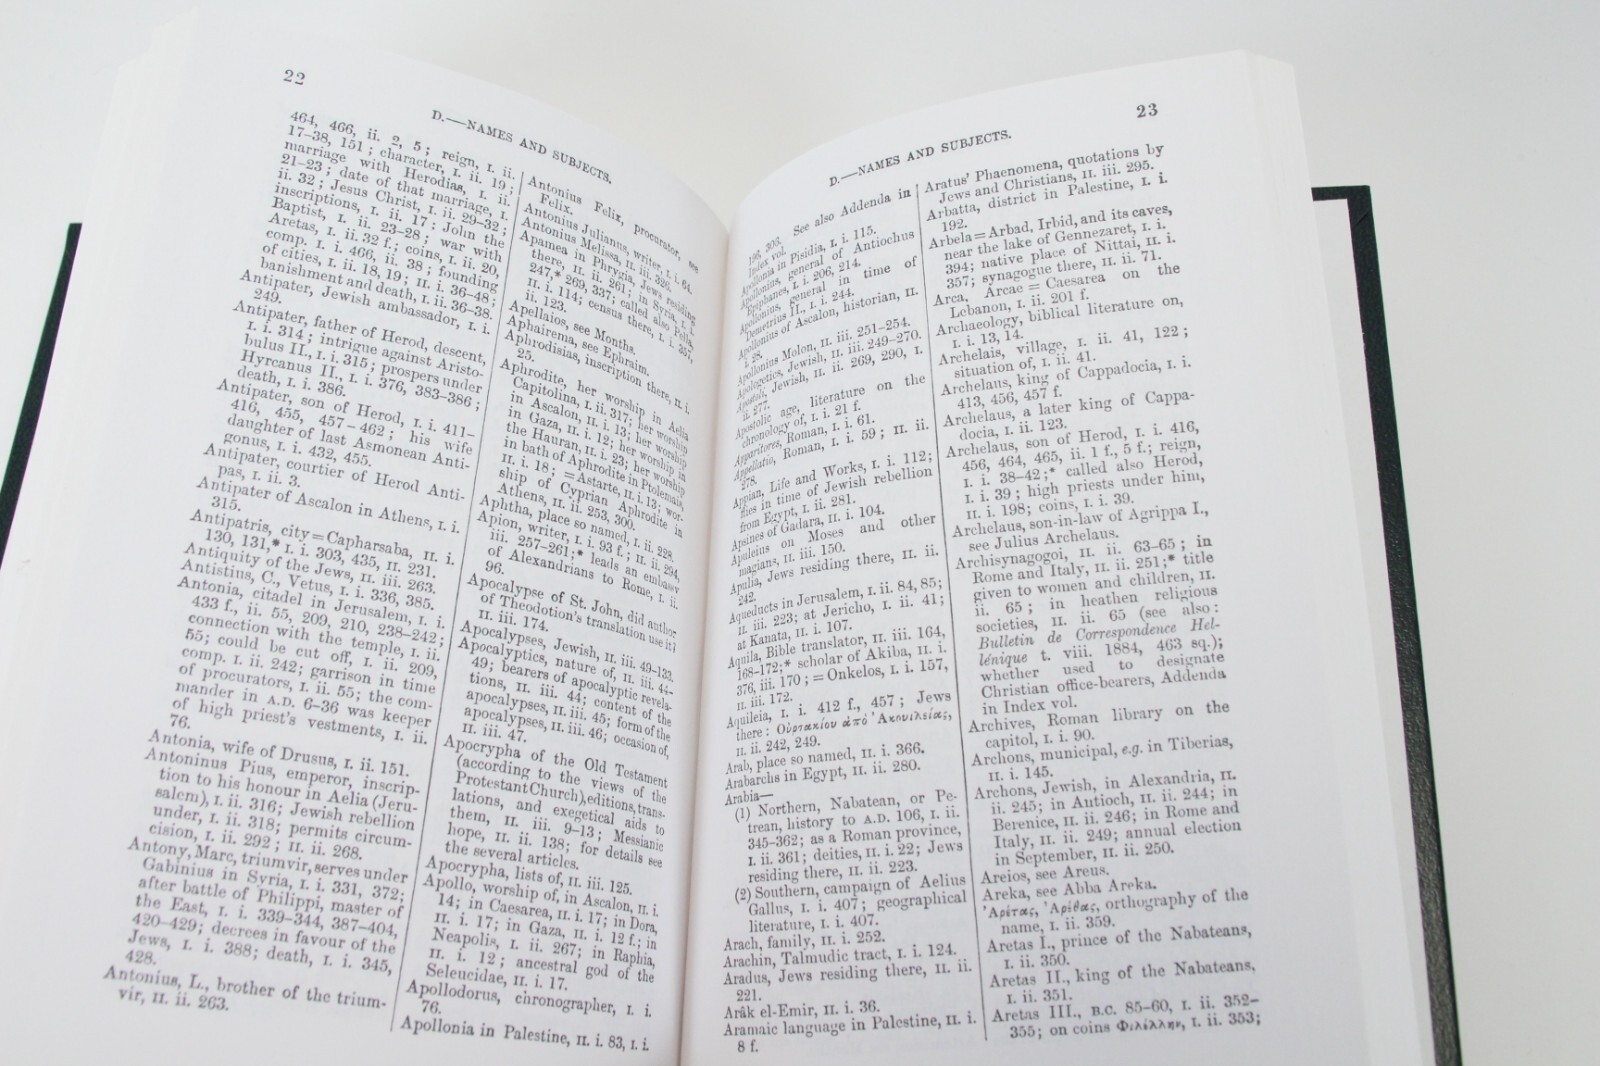 22
D.—NAMES AND SUBJECTS.
464, 466, ii. 2, 5; reign, I. ii.
17–38, 151; character, I. ii. 19;
marriage with Herodias, I. ii.
21–23; date of that marriage, I.
ii. 32; Jesus Christ, I. ii. 29–32;
inscriptions, I. ii. 17: John the
Baptist, I. ii. 23–28; war with
Aretas, I. ii. 32 f.; coins, I. ii. 20,
comp. I. i. 466, ii. 38; founding
of cities, I. ii. 18, 19; II. i. 36–48;
banishment and death, I. ii. 36–38.
Antipater, Jewish ambassador, I. i.
249.
Antipater, father of Herod, descent,
I. i. 314; intrigue against Aristo-
bulus II., I. i. 315; prospers under
Hyrcanus II., I. i. 376, 383–386;
death, I. i. 386.
Antipater, son of Herod, I. i. 411–
416, 455, 457–462; his wife
daughter of last Asmonean Anti-
gonus, I. i. 432, 455.
Antipater, courtier of Herod Anti-
pas, I. ii. 3.
Antipater of Ascalon in Athens, I. i.
315.
Antipatris, city=Capharsaba, II. i.
130, 131,* I. i. 303, 435, II. 231.
Antiquity of the Jews, II. iii. 263.
Antistius, C., Vetus, I. i. 336, 385.
Antonia, citadel in Jerusalem, I. i.
433 f., ii. 55, 209, 210, 238–242;
connection with the temple, I. ii.
55; could be cut off, I. ii. 209,
comp. I. ii. 242; garrison in time
of procurators, I. ii. 55; the com-
mander in A.D. 6–36 was keeper
of high priest's vestments, I. ii.
76.
Antonia, wife of Drusus, I. ii. 151.
Antoninus Pius, emperor, inscrip-
tion to his honour in Aelia (Jeru-
salem), I. ii. 316; Jewish rebellion
under, I. ii. 318; permits circum-
cision, I. ii. 292; II. ii. 268.
Antony, Marc, triumvir, serves under
Gabinius in Syria, I. i. 331, 372;
after battle of Philippi, master of
the East, I. i. 339–344, 387–404,
420–429; decrees in favour of the
Jews, I. i. 388; death, I. i. 345,
428.
Antonius, L., brother of the trium-
vir, II. ii. 263.
Antonius Felix, procurator, see
Felix.
Antonius Julianus, writer, I. i. 64.
Antonius Melissa, II. iii. 326.
Apamea in Phrygia, Jews residing
there, II. ii. 261; in Syria, I. i.
247,* 269, 337; called also Pella,
II. i. 114; census there, I. i. 357,
ii. 123.
Apellaios, see Months.
Aphairema, see Ephraim.
Aphrodisias, inscription there, II. i.
25.
Aphrodite, her worship in Aelia
Capitolina, I. ii. 317; her worship
in Ascalon, II. i. 13; her worship
in Gaza, II. i. 12; her worship in
the Hauran, II. i. 23; her worship
in bath of Aphrodite in Ptolemais,
II. i. 18; =Astarte, II. i. 13; wor-
ship of Cyprian Aphrodite in
Athens, II. ii. 253, 300.
Aphtha, place so named, I. ii. 228.
Apion, writer, I. i. 93 f.; II. ii. 294,
iii. 257–261;* leads an embassy
of Alexandrians to Rome, I. ii.
96.
Apocalypse of St. John, did author
of Theodotion's translation use it?
II. iii. 174.
Apocalypses, Jewish, II. iii. 49–133.
Apocalyptics, nature of, II. iii. 44–
49; bearers of apocalyptic revela-
tions, II. iii. 44; content of the
apocalypses, II. iii. 45; form of the
apocalypses, II. iii. 46; occasion of,
II. iii. 47.
Apocrypha of the Old Testament
(according to the views of the
Protestant Church), editions, trans-
lations, and exegetical aids to
them, II. iii. 9–13; Messianic
hope, II. ii. 138; for details see
the several articles.
Apocrypha, lists of, II. iii. 125.
Apollo, worship of, in Ascalon, II. i.
14; in Caesarea, II. i. 17; in Dora,
II. i. 17; in Gaza, II. i. 12 f.; in
Neapolis, I. ii. 267; in Raphia,
II. i. 12; ancestral god of the
Seleucidae, II. i. 17.
Apollodorus, chronographer, I. i.
76.
Apollonia in Palestine, II. i. 83, I. i.
23
D.—NAMES AND SUBJECTS.
196, 303. See also Addenda in
Index vol.
Apollonia in Pisidia, I. i. 115.
Apollonius, general of Antiochus
Epiphanes, I. i. 206, 214.
Apollonius, general in time of
Demetrius II., I. i. 244.
Apollonius of Ascalon, historian, II.
i. 28.
Apollonius Molon, II. iii. 251–254.
Apologetics, Jewish, II. iii. 249–270.
Apostoli, Jewish, II. ii. 269, 290, I.
ii. 277.
Apostolic age, literature on the
chronology of, I. i. 21 f.
Apparitores, Roman, I. i. 61.
Appellatio, Roman, I. i. 59; II. ii.
278.
Appian, Life and Works, I. i. 112;
flies in time of Jewish rebellion
from Egypt, I. ii. 281.
Apsines of Gadara, II. i. 104.
Apuleius on Moses and other
magians, II. iii. 150.
Apulia, Jews residing there, II. ii.
242.
Aqueducts in Jerusalem, I. ii. 84, 85;
II. iii. 223; at Jericho, I. ii. 41;
at Kanata, II. i. 107.
Aquila, Bible translator, II. iii. 164,
168–172;* scholar of Akiba, II. i.
376, iii. 170; =Onkelos, I. i. 157,
II. iii. 172.
Aquileia, I. i. 412 f., 457; Jews
there: Οὐρτακίου ἀπὸ Ἀκουιλείας,
II. ii. 242, 249.
Arab, place so named, II. i. 366.
Arabarchs in Egypt, II. ii. 280.
Arabia—
(1) Northern, Nabatean, or Pe-
trean, history to A.D. 106, I. ii.
345–362; as a Roman province,
I. ii. 361; deities, II. i. 22; Jews
residing there, II. ii. 223.
(2) Southern, campaign of Aelius
Gallus, I. i. 407; geographical
literature, I. i. 407.
Arach, family, II. i. 252.
Arachin, Talmudic tract, I. i. 124.
Aradus, Jews residing there, II. ii.
221.
Arâk el-Emir, II. i. 36.
Aramaic language in Palestine, II. i.
8 f.
Aratus' Phaenomena, quotations by
Jews and Christians, II. iii. 295.
Arbatta, district in Palestine, I. i.
192.
Arbela=Arbad, Irbid, and its caves,
near the lake of Gennezaret, I. i.
394; native place of Nittai, II. i.
357; synagogue there, II. ii. 71.
Arca, Arcae = Caesarea on the
Lebanon, I. ii. 201 f.
Archaeology, biblical literature on,
I. i. 13, 14.
Archelais, village, I. ii. 41, 122;
situation of, I. ii. 41.
Archelaus, king of Cappadocia, I. i.
413, 456, 457 f.
Archelaus, a later king of Cappa-
docia, I. ii. 123.
Archelaus, son of Herod, I. i. 416,
456, 464, 465, ii. 1 f., 5 f.; reign,
I. i. 38–42;* called also Herod,
I. i. 39; high priests under him,
II. i. 198; coins, I. i. 39.
Archelaus, son-in-law of Agrippa I.,
see Julius Archelaus.
Archisynagogoi, II. ii. 63–65; in
Rome and Italy, II. ii. 251;* title
given to women and children, II.
ii. 65; in heathen religious
societies, II. ii. 65 (see also:
Bulletin de Correspondence Hel-
lénique t. viii. 1884, 463 sq.);
whether used to designate
Christian office-bearers, Addenda
in Index vol.
Archives, Roman library on the
capitol, I. i. 90.
Archons, municipal, e.g. in Tiberias,
II. i. 145.
Archons, Jewish, in Alexandria, II.
ii. 245; in Antioch, II. ii. 244; in
Berenice, II. ii. 246; in Rome and
Italy, II. ii. 249; annual election
in September, II. ii. 250.
Areios, see Areus.
Areka, see Abba Areka.
Ἀρέτας, Ἀρέθας, orthography of the
name, I. ii. 359.
Aretas I., prince of the Nabateans,
I. ii. 350.
Aretas II., king of the Nabateans,
I. ii. 351.
Aretas III., B.C. 85–60, I. ii. 352–
355; on coins Φιλέλλην, I. ii. 353;